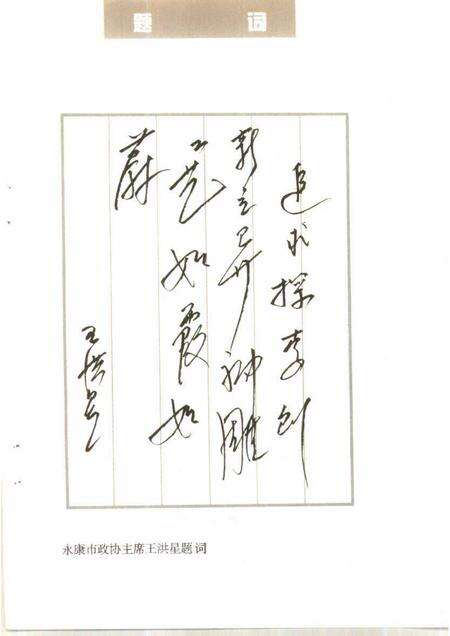 题 词
追求探索创
新立异神雕
工艺如霞如
蔚
王洪星
永康市政协主席王洪星题词